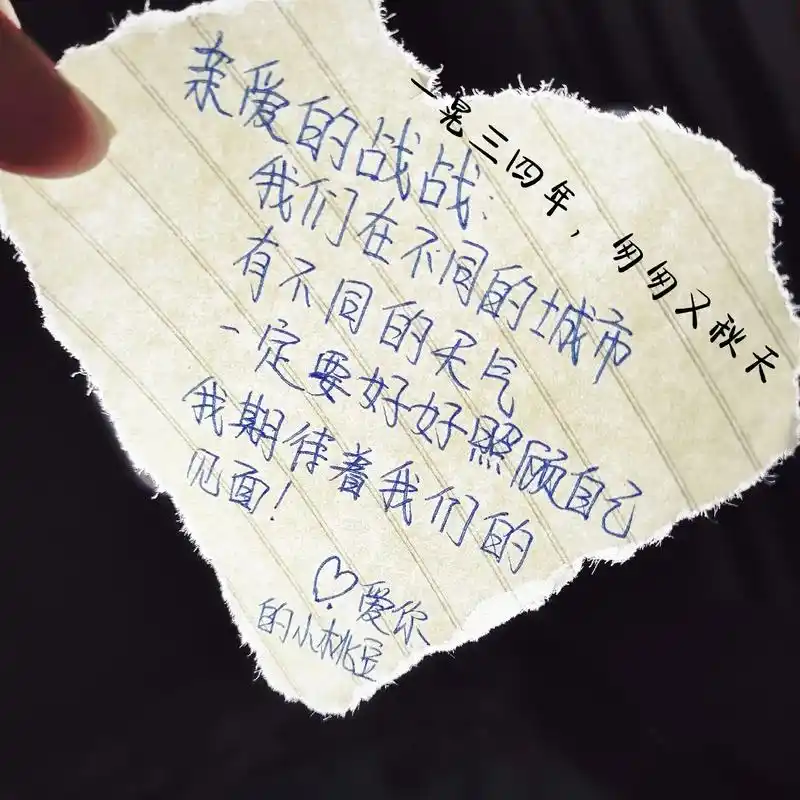 亲爱的战战:
我们在不同的城市
有不同的天气
一定要好好照顾自己
我期待着我们的
见面!
♡爱你
的小桃豆
一晃三四年，匆匆又秋天